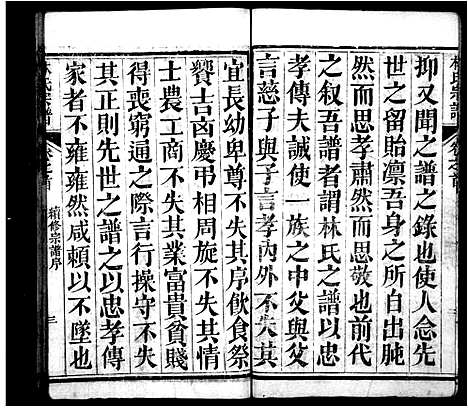 林氏宗譜
卷之首
抑又聞之譜之錄也人念先
世之留貽凜吾身之所自出肫
然而思孝肅然而思敬也前代
之叙吾譜者謂林氏之譜以忠
孝傳夫誠使一族之中父與父
言慈子與子言孝內外不失其
宜長幼卑尊不失其序飲食祭
饗吉凶慶弔相周旋不失其情
士農工商不失其業富貴貧賤
得喪窮通之際言行操守不失
其正則先世之譜之以忠孝傳
家者不雍雍然咸賴以不墜也
林氏宗譜
卷之首
續修宗譜序
三